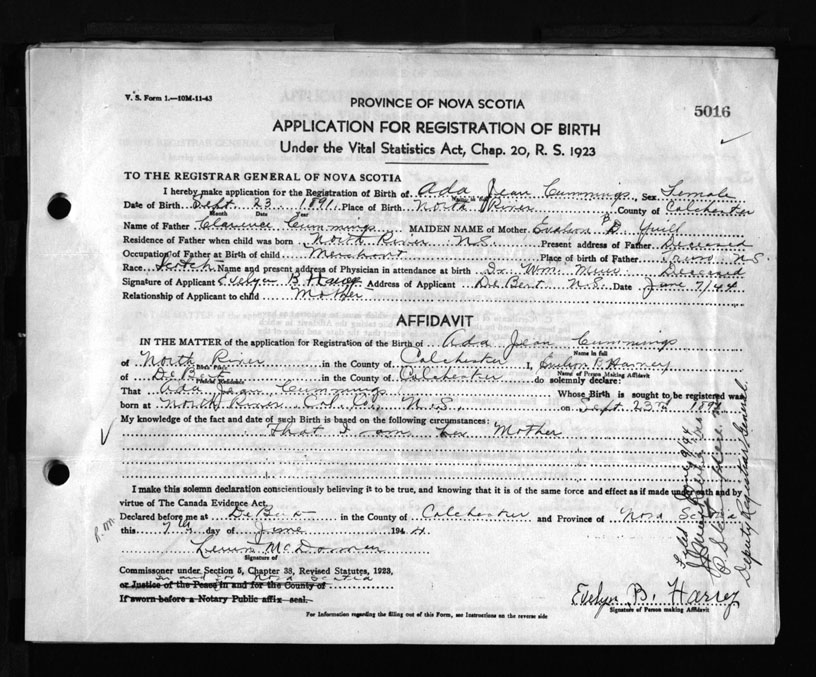 V. S. Form 1.—10M-11-43
PROVINCE OF NOVA SCOTIA
5016
APPLICATION FOR REGISTRATION OF BIRTH
Under the Vital Statistics Act, Chap. 20, R. S. 1923
TO THE REGISTRAR GENERAL OF NOVA SCOTIA
I hereby make application for the Registration of Birth of Ada Jean Cummings, Sex Female
Date of Birth Sept. 23 1891 Place of Birth North River County of Colchester
Month Date Year
Name of Father Clarence Cummings MAIDEN NAME of Mother B. Yuill
Residence of Father when child was born North River N.S. Present address of Father Deceased
Occupation of Father at Birth of child Merchant Place of birth of Father Truro N.S.
Race Scotch Name and present address of Physician in attendance at birth Dr. Wm. Deceased
Signature of Applicant Evelyn B. Address of Applicant De Bert N.S. Date June 7/44
Relationship of Applicant to child Mother
AFFIDAVIT
IN THE MATTER of the application for Registration of the Birth of Ada Jean Cummings
Name in full
of North River in the County of Colchester I, Evelyn B.
Birth Place Name of Person Making Affidavit
of De Bert in the County of Colchester do solemnly declare:
Present Residence
That Ada Jean Cummings Whose Birth is sought to be registered was
born at North River Col. Co., N.S., on Sept. 23rd 1891
My knowledge of the fact and date of such Birth is based on the following circumstances:
That I am her Mother
I make this solemn declaration conscientiously believing it to be true, and knowing that it is of the same force and effect as if made under oath and by
virtue of The Canada Evidence Act.
Declared before me at De Bert in the County of Colchester and Province of Nova Scotia
this 7th day of June 1944
Signature of
Commissioner under Section 5, Chapter 38, Revised Statutes, 1923,
in and for Nova Scotia
or Justice of the Peace in and for the County of
If sworn before a Notary Public affix seal.
Evelyn B.
Signature of Person making Affidavit
For Information regarding the filling out of this Form, see Instructions on the reverse side
Deputy Registrar General